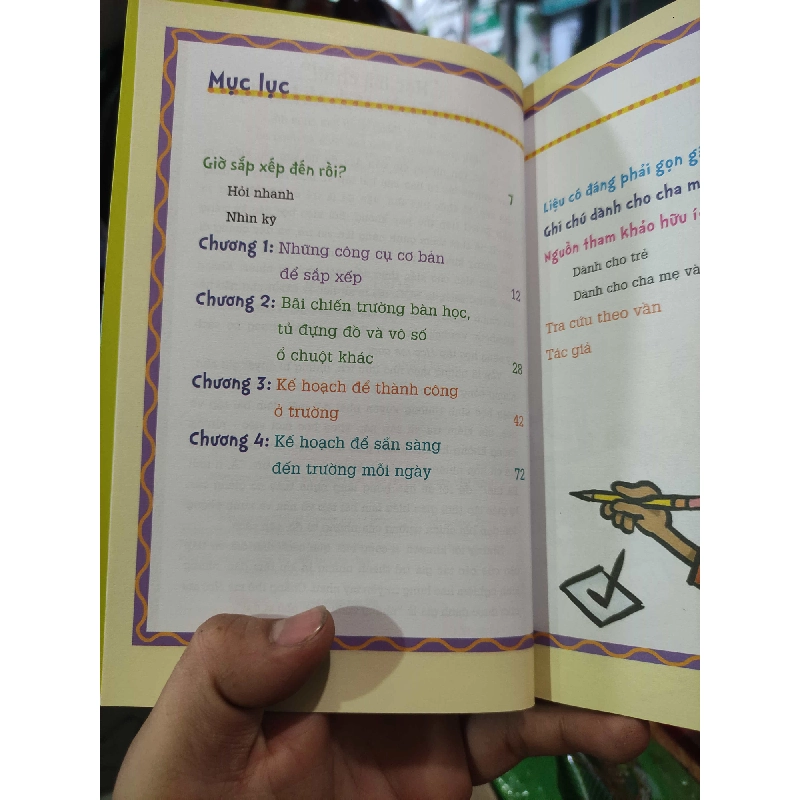 Mục lục
Giờ sắp xếp đến rồi?
Hỏi nhanh
7
Nhìn kỹ
Chương 1: Những công cụ cơ bản
để sắp xếp
12
Chương 2: Bãi chiến trường bàn học,
tủ đựng đồ và vô số
ổ chuột khác
28
Chương 3: Kế hoạch để thành công
ở trường
42
Chương 4: Kế hoạch để sẵn sàng
đến trường mỗi ngày
72
Liệu có đáng phải gọn
Ghi chú dành cho cha
Nguồn tham khảo hữu
Dành cho trẻ
Dành cho cha mẹ và
Tra cứu theo vần
Tác giả